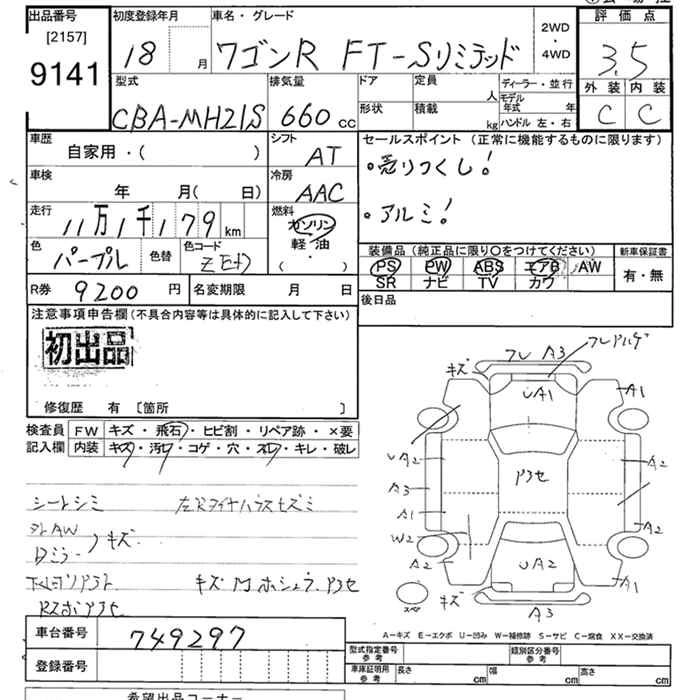 出品番号 初度登録年月 車名・グレード 評価点
[2157]
9141
18 月 ワゴンR FT-Sリミテッド 2WD・4WD 3.5
外装 内装
C C
型式 排気量 ドア 定員 人 ディーラー・並行
CBA-MH21S 660 cc 形状 積載 kg モデル年式 年
ハンドル 左・右
車歴 シフト セールスポイント (正常に機能するものに限ります)
自家用・( ) AT ・売りつくし!
車検 年 月( 日) 冷房 AAC
・アルミ!
走行 11万1千179 km 燃料 ガソリン
軽・油
( )
色 パープル 色替 色コード
装備品 (純正品に限り〇をつけてください) 新車保証書
PS PW ABS エアB AW 有・無
SR ナビ TV カワ
R券 9200 円 名変期限 月 日
後日品
注意事項申告欄(不具合内容等は具体的に記入して下さい)
初出品
修復歴 有 〔箇所 〕
検査員 FW キズ・飛石・ヒビ割・リペア跡・×要
記入欄 内装 キズ・汚レ・コゲ・穴・スレ・キレ・破レ
シートシミ
AW
キズ
Dミラー
フレ A3
キズ
UA1
A1
UA2
A2
A3
A1
W2
A2
A2
UA2
A1
キズ
A3
スペア
A-キズ E-エクボ U-凹み W-補修跡 S-サビ C-腐食 XX-交換済
車台番号 749297
登録番号
型式指定番号 参考 類別区分番号 参考
車庫証明用 参考 長さ cm 幅 cm 高さ cm
希望出品コーナー